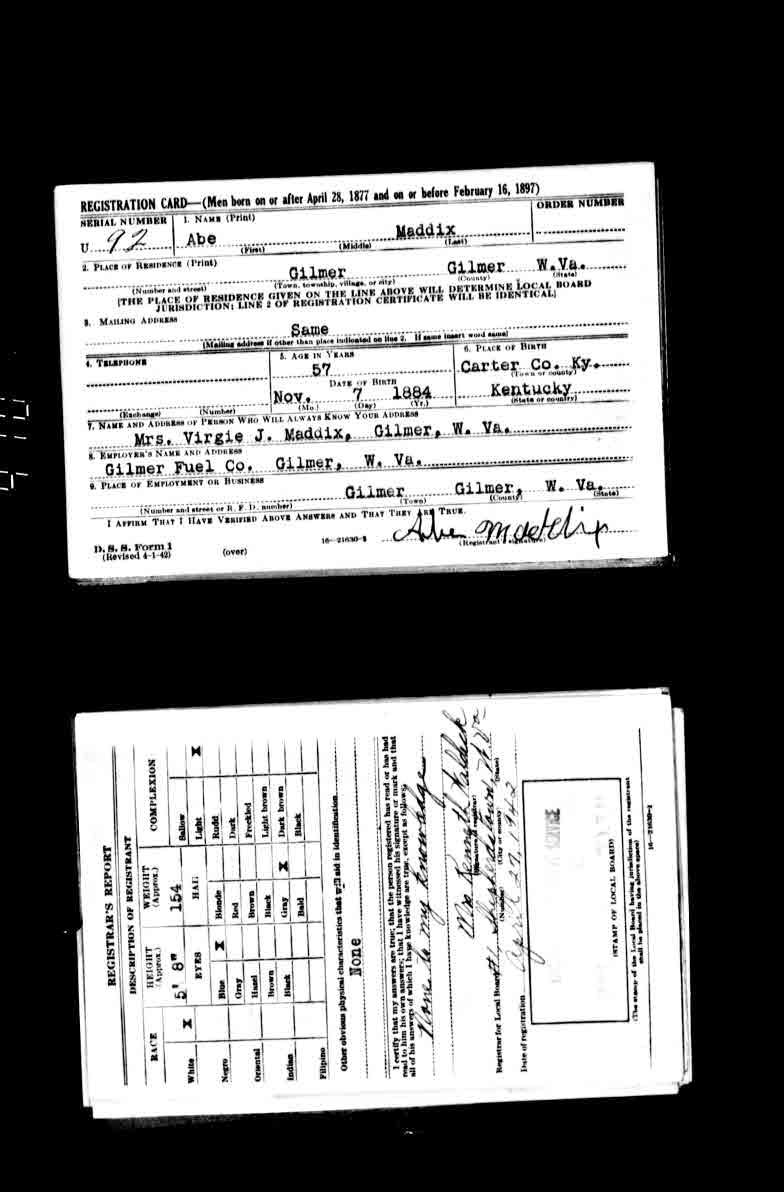 REGISTRATION CARD—(Men born on or after April 28, 1877 and on or before February 16, 1897)
SERIAL NUMBER 1. NAME (Print) ORDER NUMBER
U 92 Abe Maddix
(First) (Middle) (Last)
2. PLACE OF RESIDENCE (Print)
Gilmer Gilmer W.Va.
(Number and street) (Town, township, village, or city) (County) (State)
[THE PLACE OF RESIDENCE GIVEN ON THE LINE ABOVE WILL DETERMINE LOCAL BOARD
JURISDICTION; LINE 2 OF REGISTRATION CERTIFICATE WILL BE IDENTICAL]
3. MAILING ADDRESS
Same
[Mailing address if other than place indicated on line 2. If same insert word same]
4. TELEPHONE 5. AGE IN YEARS 6. PLACE OF BIRTH
57 Carter Co. Ky.
(Town or county)
DATE OF BIRTH
Nov. 7 1884 Kentucky
(Exchange) (Number) (Mo.) (Day) (Yr.) (State or country)
7. NAME AND ADDRESS OF PERSON WHO WILL ALWAYS KNOW YOUR ADDRESS
Mrs. Virgie J. Maddix, Gilmer, W. Va.
8. EMPLOYER'S NAME AND ADDRESS
Gilmer Fuel Co. Gilmer, W. Va.
9. PLACE OF EMPLOYMENT OR BUSINESS
Gilmer Gilmer, W. Va.
(Number and street or R. F. D. number) (Town) (County) (State)
I AFFIRM THAT I HAVE VERIFIED ABOVE ANSWERS AND THAT THEY ARE TRUE.
Abe Maddix
D. S. S. Form 1 16—21630-2 (Registrant's signature)
(Revised 4-1-42) (over)
REGISTRAR'S REPORT
DESCRIPTION OF REGISTRANT
RACE HEIGHT (Approx.) WEIGHT (Approx.) COMPLEXION
White X 5' 8" 154 Sallow
EYES HAIR Light X
Negro Blue X Blonde Rudd
Gray Red Dark
Oriental Hazel Brown Freckled
Brown Black Light brown
Indian Black Gray X Dark brown
Bald Black
Filipino
Other obvious physical characteristics that will aid in identification
None
I certify that my answers are true; that the person registered has read or has had
read to him his own answers; that I have witnessed his signature or mark and that
all of his answers of which I have knowledge are true, except as follows:
None to my knowledge
Mrs Kenneth
(Signature of registrar)
Registrar for Local Board W Va
(Number) (City or county) (State)
Date of registration April 27, 1942
(STAMP OF LOCAL BOARD)
(The stamp of the Local Board having jurisdiction of the registrant
shall be placed in the above space)
16—21630-1